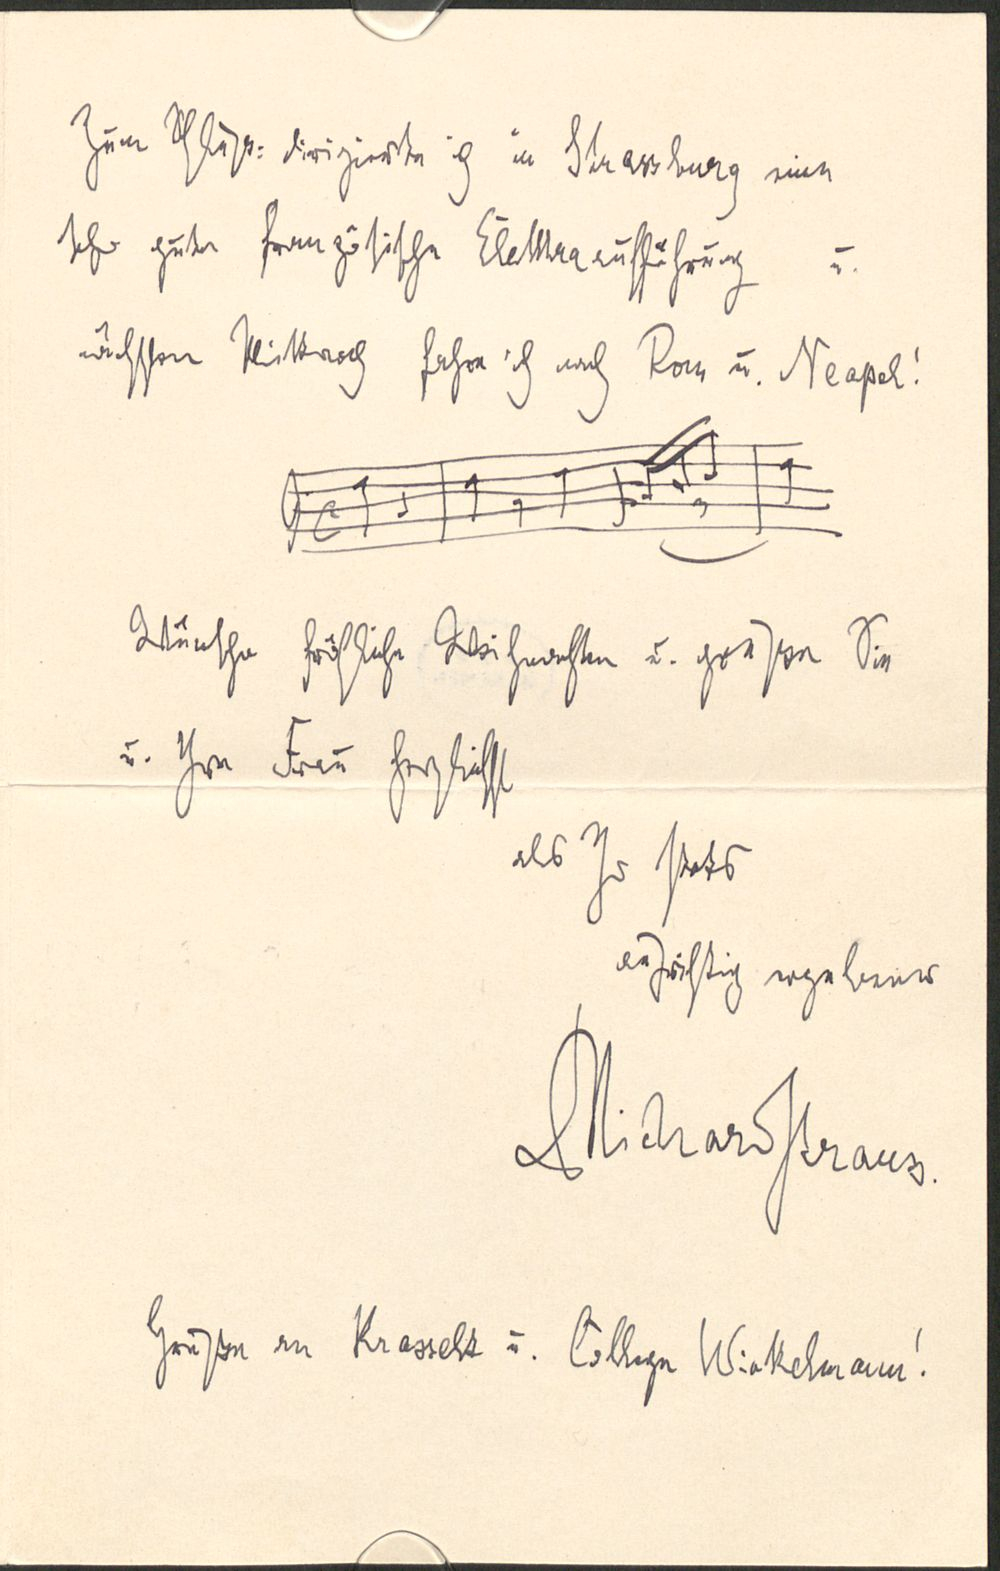 Zum Schluß: dirigierte ich in Strassburg eine
sehr gute französische Elektraaufführung u.
nächsten Mittwoch fahre ich nach Rom u. Neapel!
Wünsche fröhliche Weihnachten u. grüße Sie
u. Ihre Frau herzlichst
als Ihr stets
aufrichtig ergebener
DrRichardStrauss.
Grüße an Krasselt u. College Winkelmann!